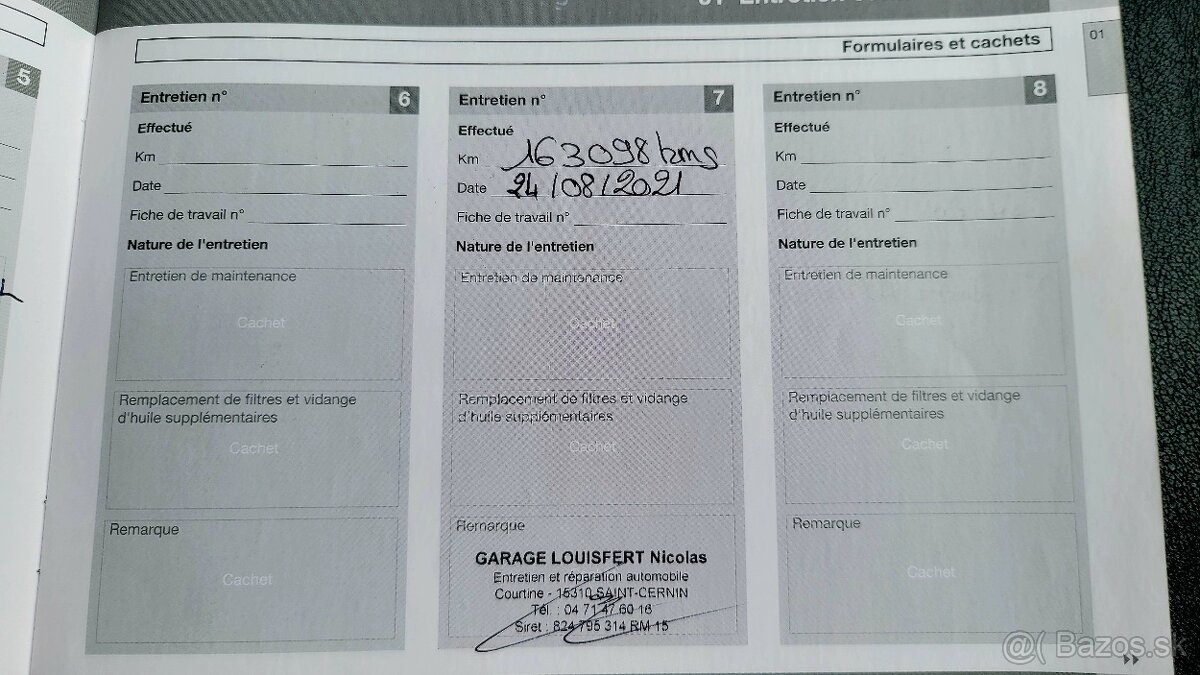 Formulaires et cachets
01
5
Entretien n° 6
Effectué
Km
Date
Fiche de travail n°
Nature de l'entretien
Entretien de maintenance
Cachet
Remplacement de filtres et vidange
d'huile supplémentaires
Cachet
Remarque
Cachet
Entretien n° 7
Effectué
Km 163098 kms
Date 24/08/2021
Fiche de travail n°
Nature de l'entretien
Entretien de maintenance
Cachet
Remplacement de filtres et vidange
d'huile supplémentaires
Cachet
Remarque
GARAGE LOUISFERT Nicolas
Entretien et réparation automobile
Courtine - 15310 SAINT-CERNIN
Tél. : 04 71 47 60 16
Siret : 824 795 314 RM 15
Entretien n° 8
Effectué
Km
Date
Fiche de travail n°
Nature de l'entretien
Entretien de maintenance
Cachet
Remplacement de filtres et vidange
d'huile supplémentaires
Cachet
Remarque
Cachet
@( Bazos.sk